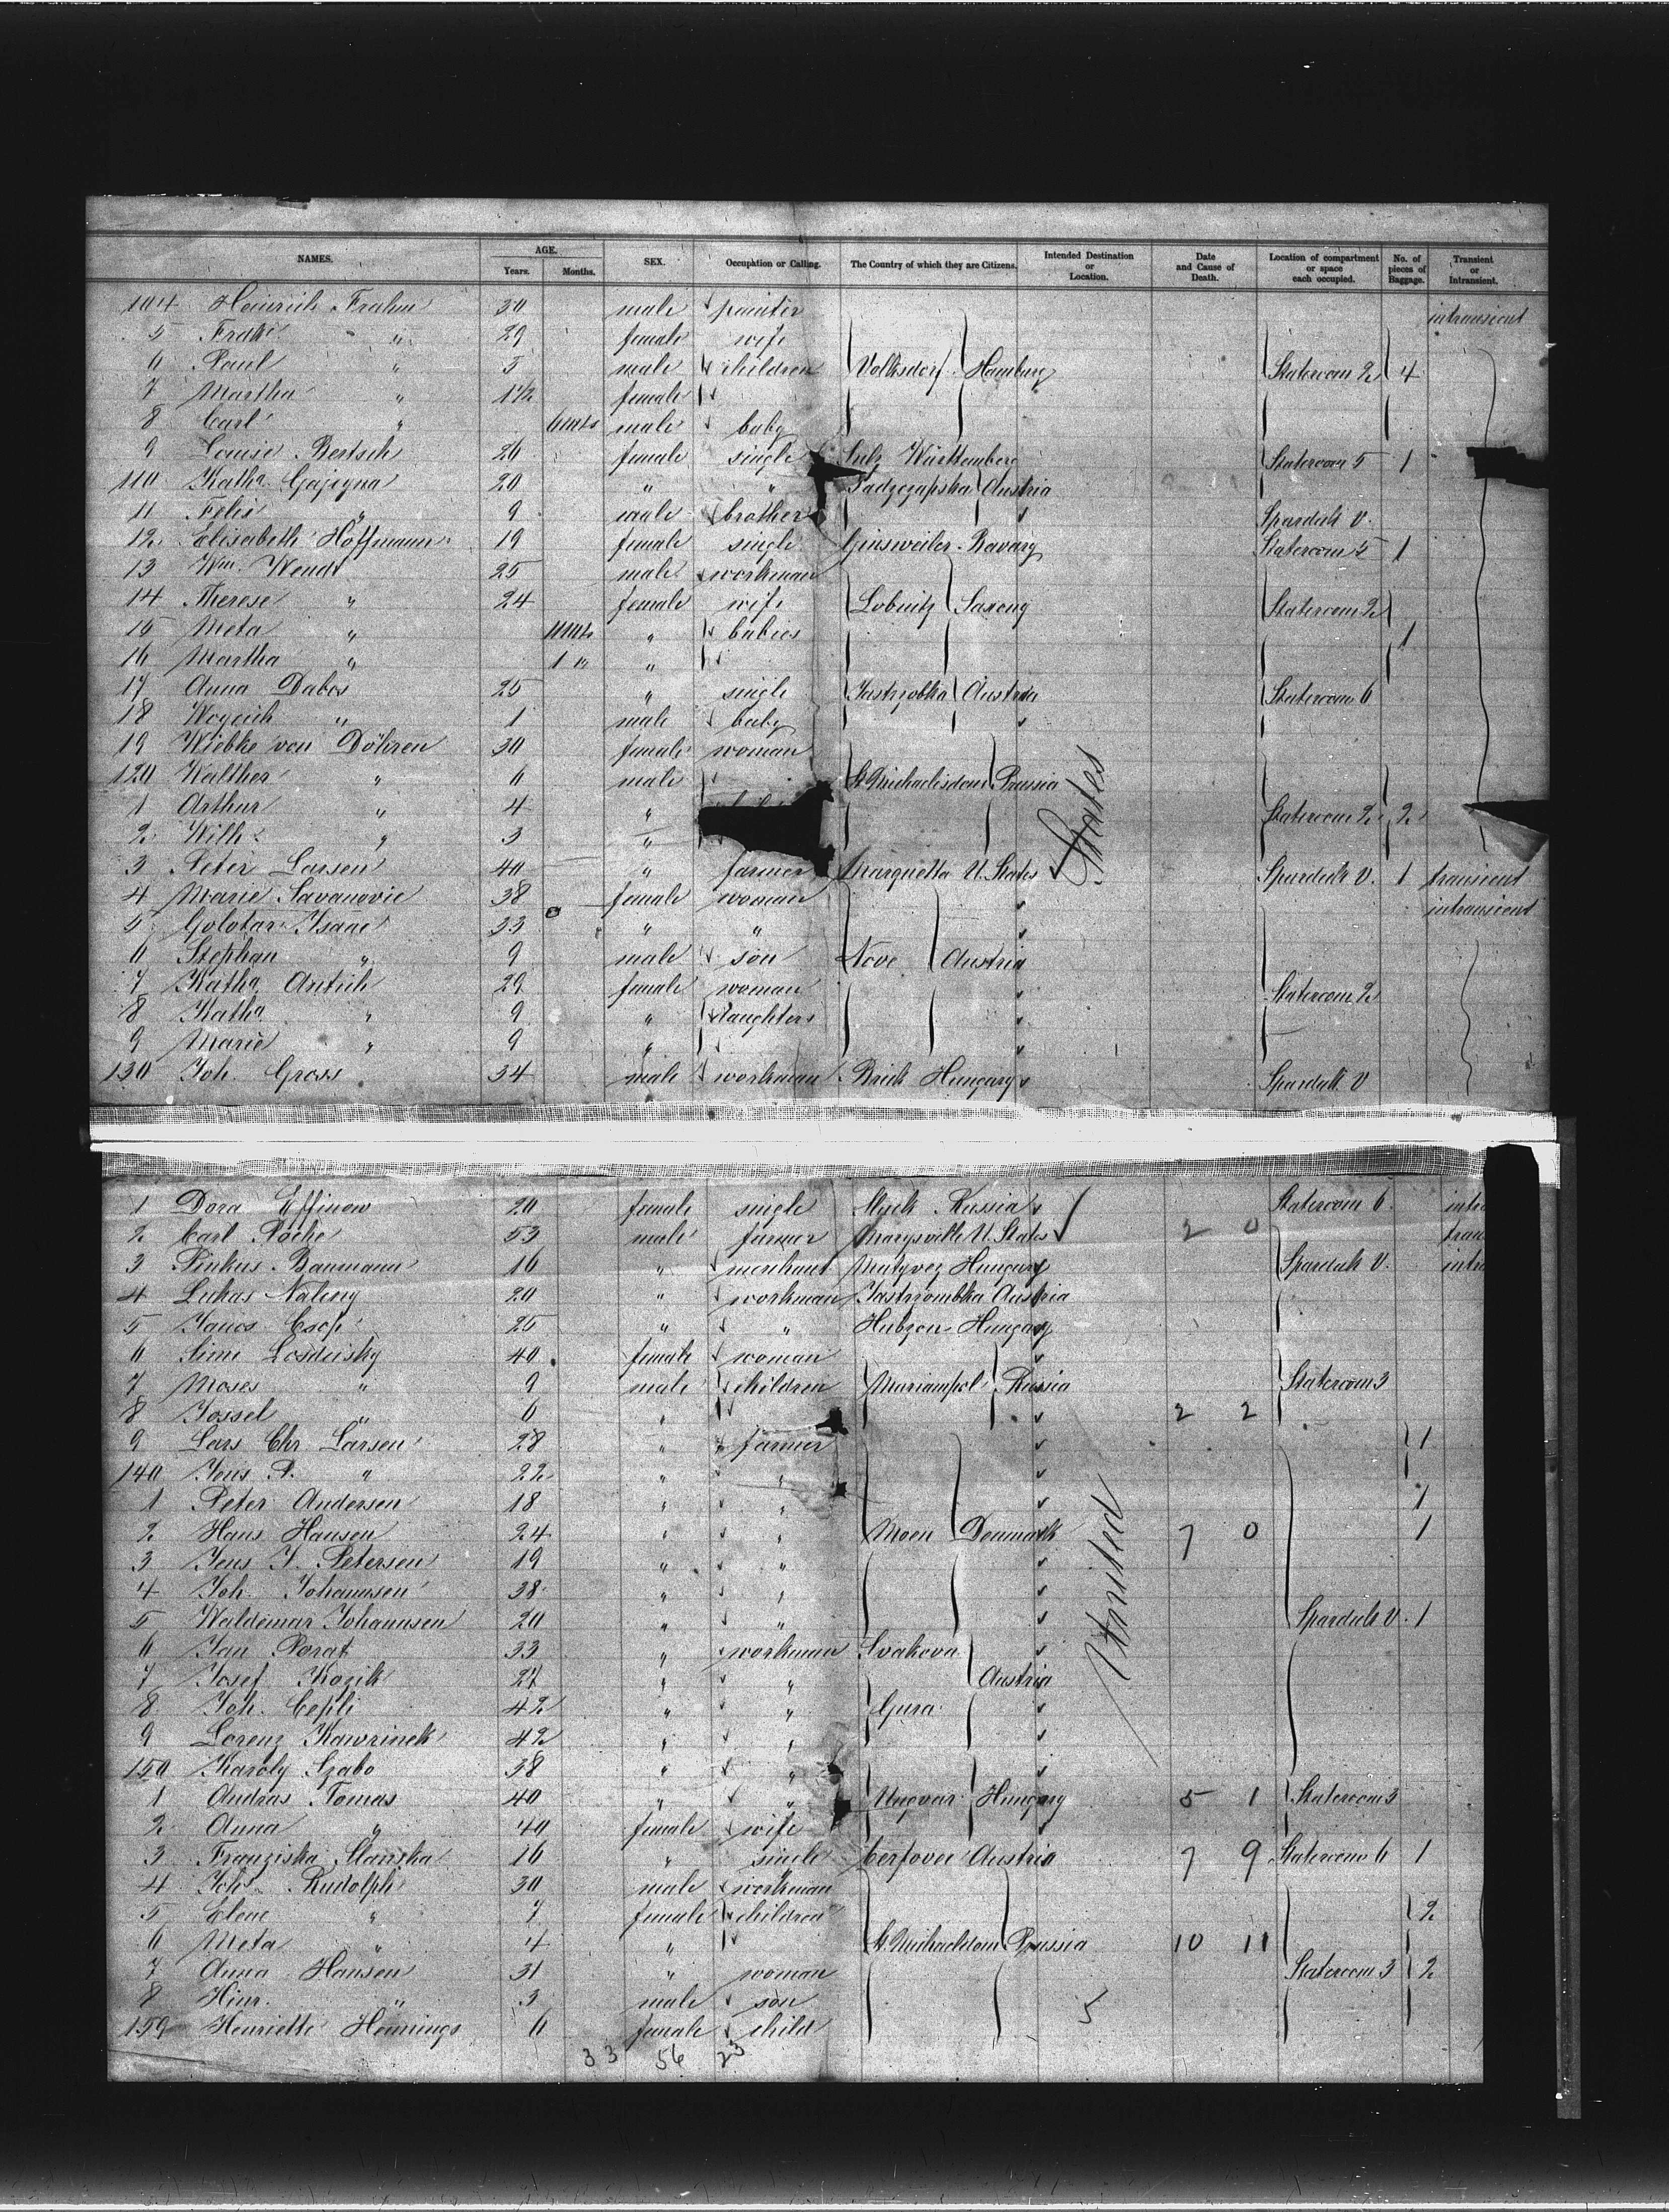 NAMES. AGE. Years. Months. SEX. Occupation or Calling. The Country of which they are Citizens. Intended Destination or Location. Date and Cause of Death. Location of compartment or space each occupied. No. of pieces of Baggage. Transient or Intransient.
104 Heinrich Frahm 30 male painter intransient
5 " 29 female wife
6 Paul " 3 male children Volksdorf Hamburg Stateroom 2 4
7 Martha " 1 1/2 female
8 Carl " 6 mts male baby
9 Louise Bertsch 26 female single Sulz Württemberg Stateroom 5 1
110 Katha Gajegna 20 " " Austria
11 Felix " 9 male brother Spardeck V.
12 Elisabeth Hoffmann 19 female single Ginsweiler Bavary Stateroom 5 1
13 Wm. Wendt 25 male workman
14 Therese " 24 female wife Lobnitz Saxony Stateroom 2
15 Meta " 11 mts " babies 1
16 Martha " 1 " "
17 Anna Dabos 25 " single Jastrzobka Austria Stateroom 6
18 Woycich " 1 male baby
19 Wiebke von Döhren 30 female woman
120 Walther " 6 male St. Michaelisdonn Prussia
1 Arthur " 4 " Stateroom 2 2
2 Wilh. " 3 "
3 Peter Larsen 40 " farmer Marquetta U. States Spardeck V. 1 transient
4 Marie Savanovic 38 female woman intransient
5 Golotar Isaac 33 " "
6 Stephan " 9 male son Nove Austria
7 Katha Antich 29 female woman Stateroom 2
8 Katha " 9 " daughters
9 Marie " 9 "
130 Joh. Gross 34 male workman Brick Hungary Spardeck V
States
1 Dora Effinow 20 female single Russia Stateroom 6
2 Carl Roche 53 male farmer Marysville U. States 2 0
3 Pinkus Baumann 16 " merchant Hungary Spardeck V.
4 Lukas Naleny 20 " workman Jastrzombka Austria
5 Janos 25 " " Hungary
6 Sime Losdeisky 40 female woman
7 Moses " 9 male children Mariampol Russia Stateroom 3
8 Jossel " 6 " 2 2
9 Lars Chr Larsen 28 " farmer 1
140 Jens P. " 22 " "
1 Peter Andersen 18 " " 1
2 Hans Hansen 24 " " Moen Denmark 7 0 1
3 Jens J. Petersen 19 " "
4 Joh. Johannsen 38 " "
5 Waldemar Johannsen 20 " " Spardeck V. 1
6 Jan Porat 33 " workman Svakova
7 Josef Kozik 27 " " Austria
8 Joh. Cepli 42 " " Gura
9 Lorenz Kawrinek 42 " "
150 Karoly Szabo 38 " "
1 Andras Tomas 40 " " Ungvar Hungary 5 1 Stateroom 3
2 Anna " 40 female wife
3 Franziska Slanska 16 " single Austria 7 9 Stateroom 6 1
4 Johs. Rudolph 30 male workman
5 Elene " 7 female children 2
6 Meta " 4 " St. Michaeldonn Prussia 10 11
7 Anna Hansen 31 " woman Stateroom 3 2
8 Hinr. " 3 male son 5
159 Henriette Hennings 6 female child
United
33 56 23